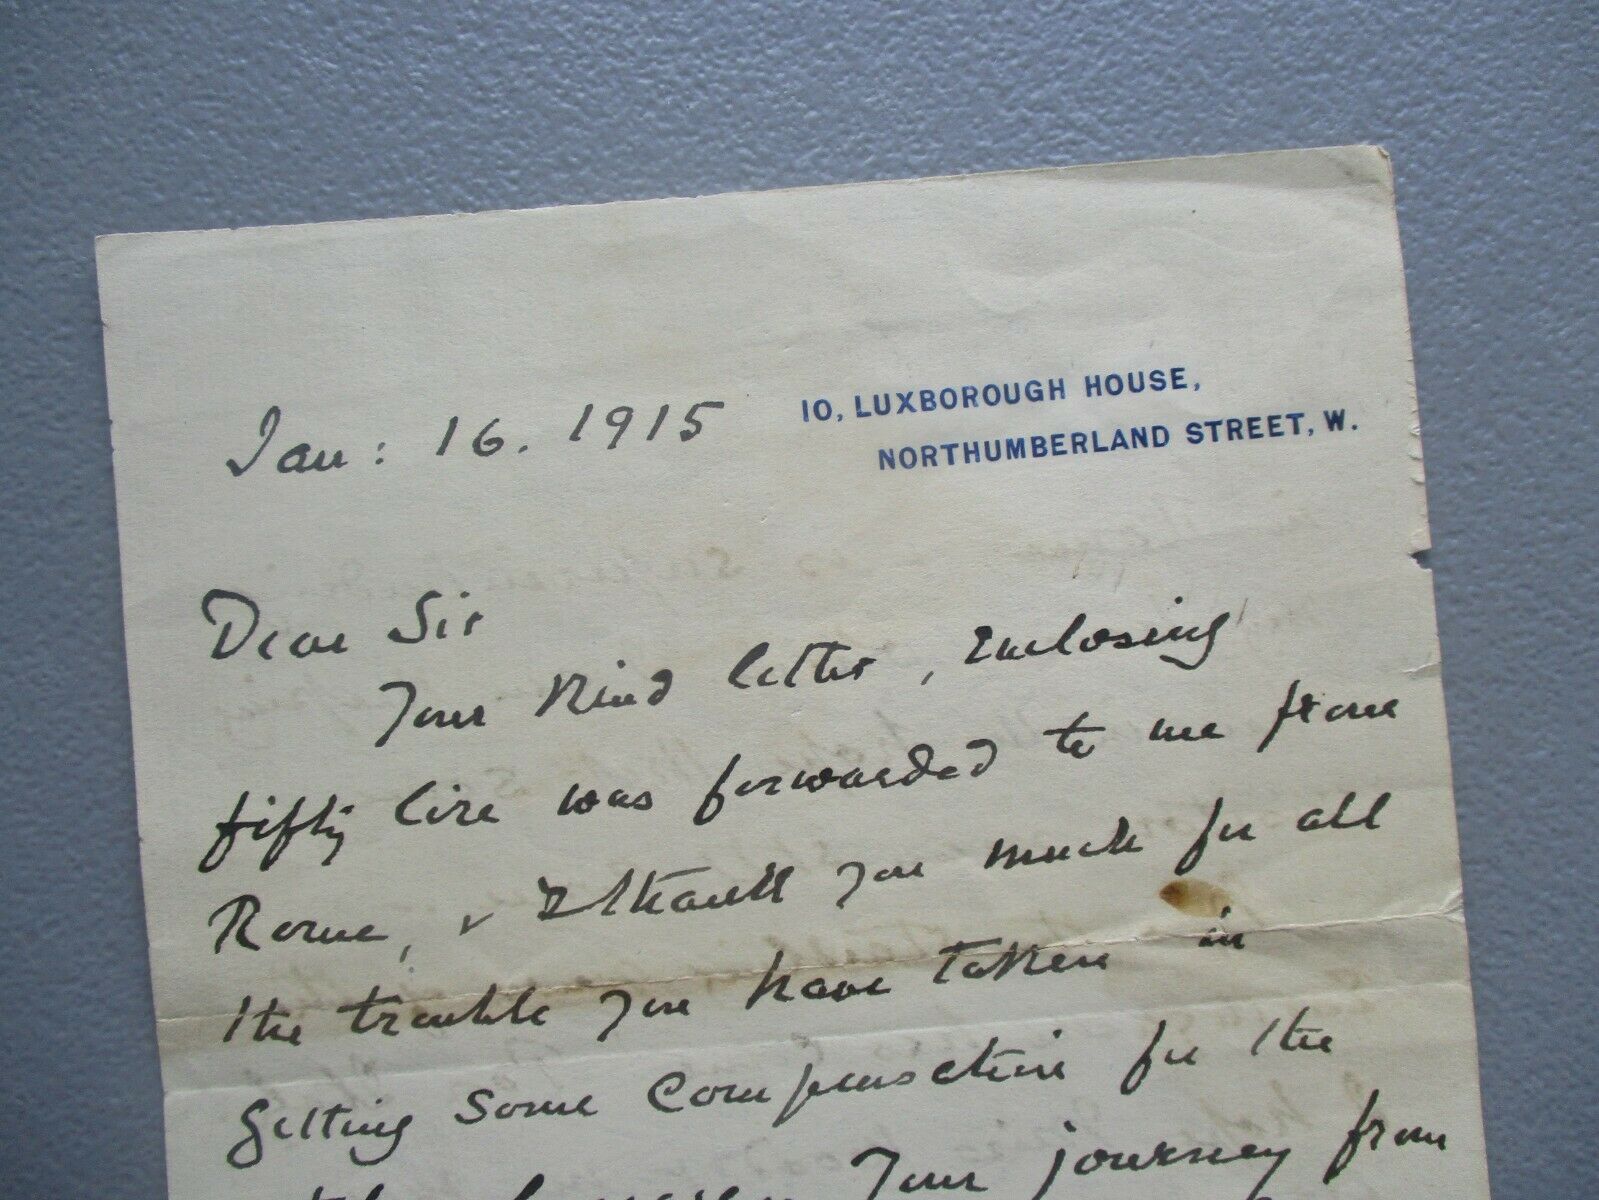 10, LUXBOROUGH HOUSE,
NORTHUMBERLAND STREET, W.
Jan: 16. 1915
Dear Sir
Your kind letter, enclosing
fifty lire was forwarded to me from
Rome, & I thank you much for all
the trouble you have taken in
getting some compensation for the
your journey from